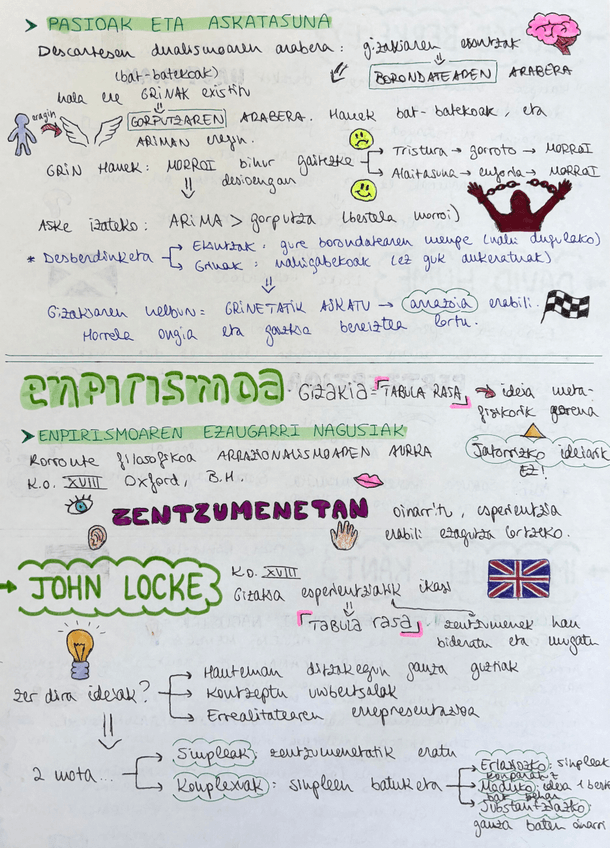 > PASIOAK ETA ASKATASUNA
Descartesen dualismoaren arabera: gizakiaren ekintzak
(bat-batekoak)
BORONDATEAREN ARABERA
hala ere GRINAK existitu
eragin
GORPUTZAREN ARABERA. Hauek bat-batekoak, eta
ARIMAN eragin.
GRIN Hauek: MORROI bihur gaitzake
desioengan
Tristura → gorroto → MORROI
Alaitasuna → euforia → MORROI
ASKE izateko: ARIMA > gorputza (bertela morroi)
* Desberdinketa
Ekintzak: gure borondatearen menpe (nahi dugulako)
Grinak: nahigabekoak (ez guk aukeratuak)
Gizakiaren helburu: GRINETATIK ASKATU → arrazoia erabili.
Horrela ongia eta gaizkia bereiztea lortu.
ENPIRISMOA. Gizakia = "TABULA RASA" → ideia meta-
fisikorik gabea
> ENPIRISMOAREN EZAUGARRI NAGUSIAK
Jatorrizko ideiarik
EZ!
Korronte filosofikoa ARRAZIONALISMOAREN AURKA
K.O. XVIII Oxford, B.H.
ZENTZUMENETAN oinarritu, esperientzia
erabili ezagutza lortzeko.
→ JOHN LOCKE
K.O. XVIII
Gizakia esperientziatik ikasi
"Tabula rasa"
zentzumenek hau
bideratu eta mugatu
zer dira ideiak?
Hauteman ditzakegun gauza guztiak
Kontzeptu unibertsalak
Errealitatearen errepresentazioa
2 mota...
Sinpleak: zentzumenetatik eratu
Konplexuak: sinpleen batuketa
Erlaziozko: sinpleak
konparatuz
Moduko: ideia 1 beste
bat behar
Substantziazko:
gauza baten oinarri